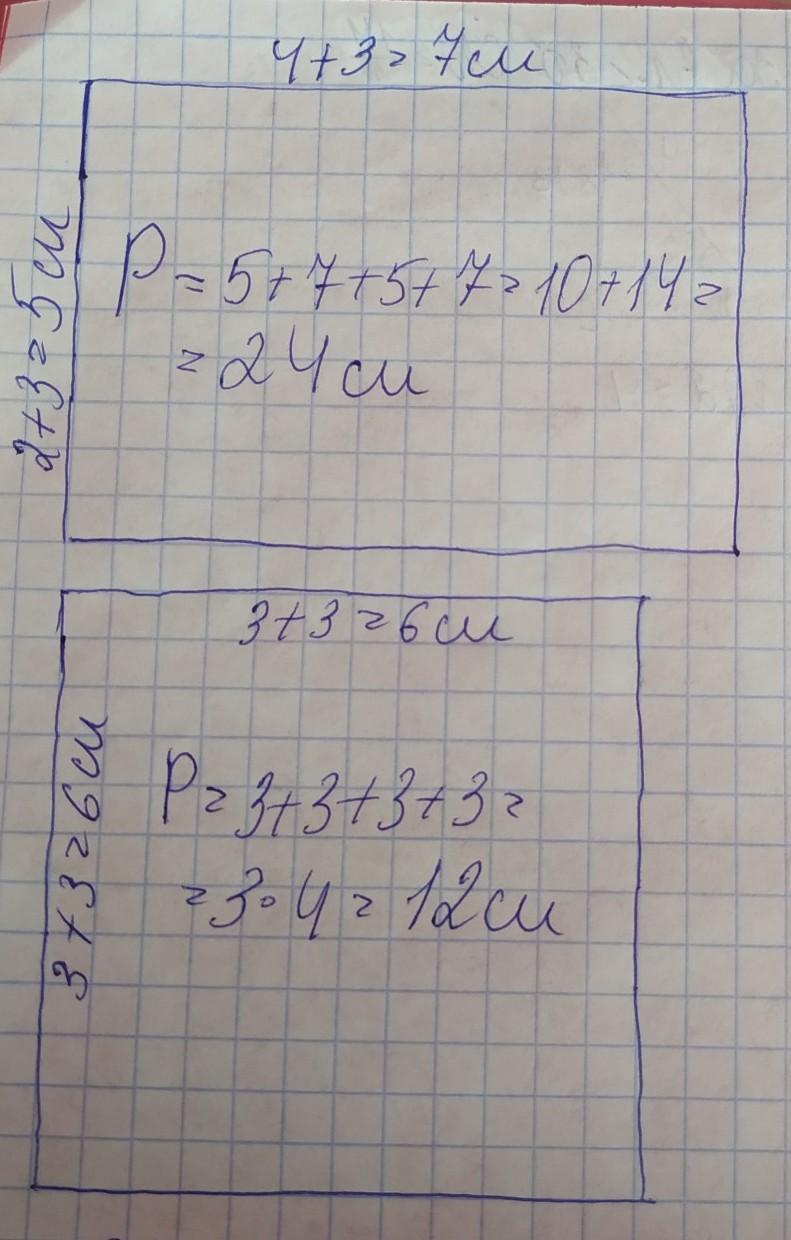 4+3=7см
2+3=5см
P=5+7+5+7=10+14=
=24см
3+3=6см
3+3=6см
P=3+3+3+3=
=3·4=12см